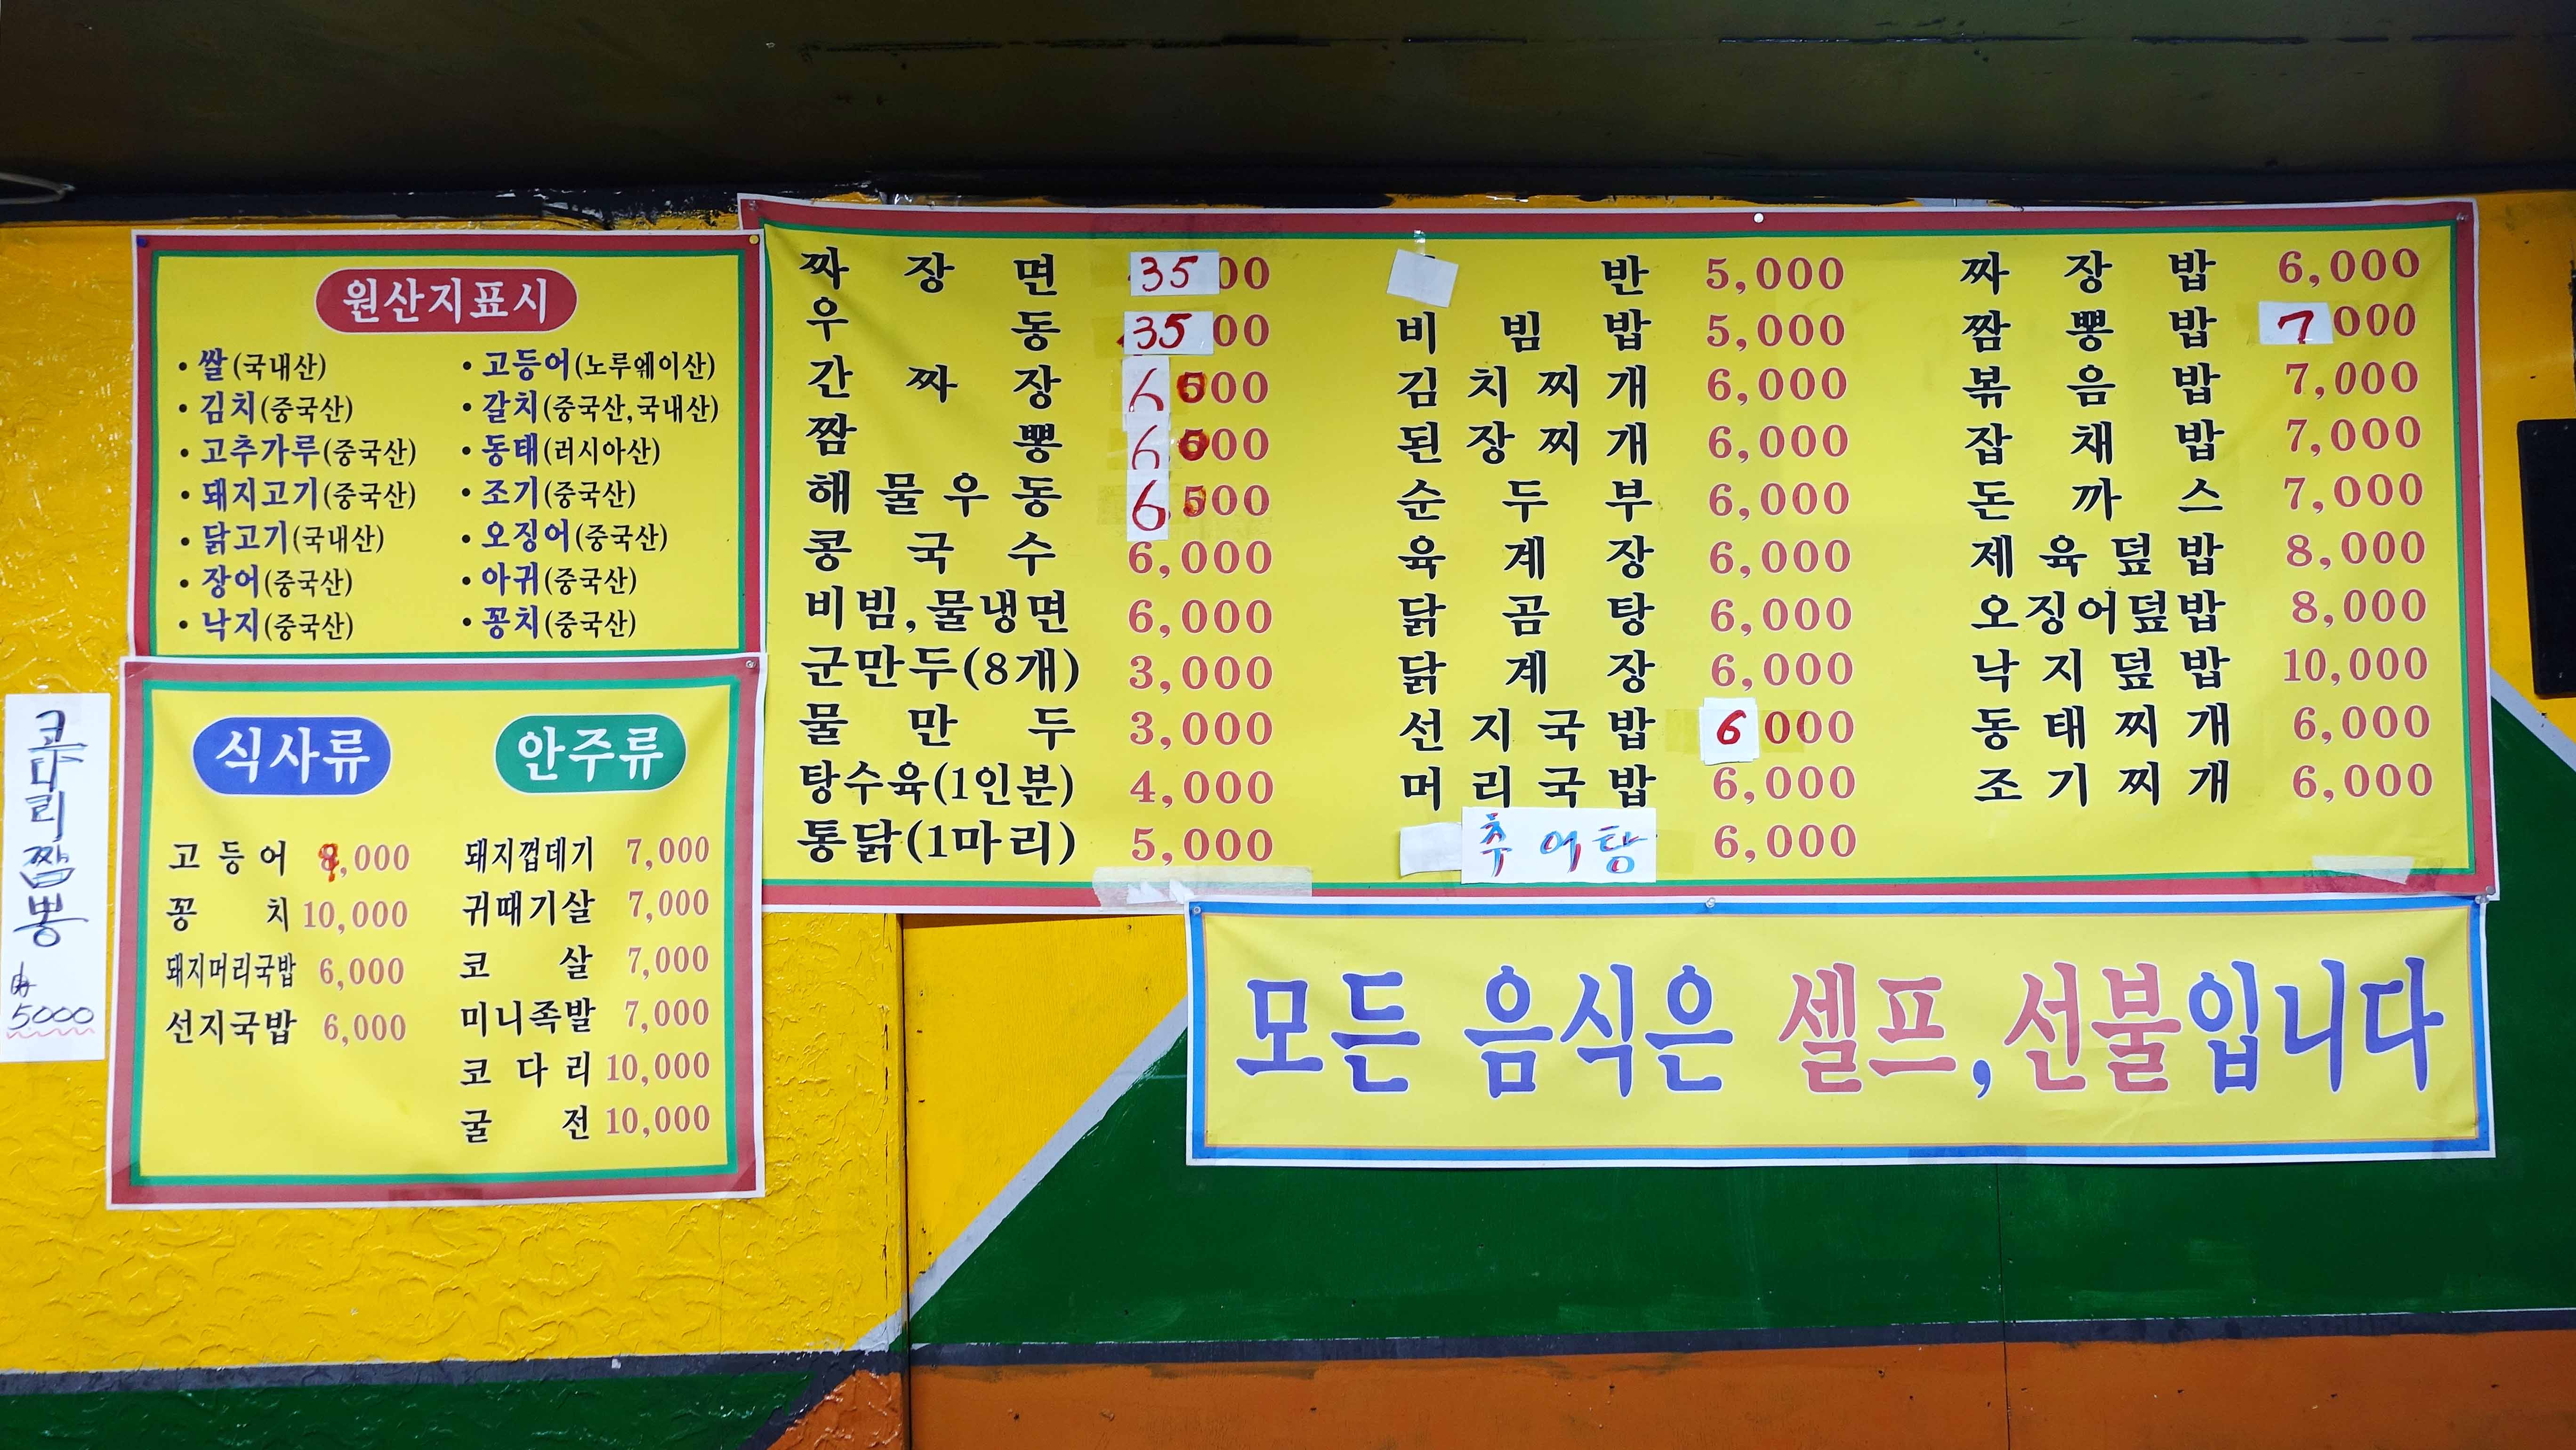 원산지표시
• 쌀(국내산) • 고등어(노루웨이산)
• 김치(중국산) • 갈치(중국산,국내산)
• 고추가루(중국산) • 동태(러시아산)
• 돼지고기(중국산) • 조기(중국산)
• 닭고기(국내산) • 오징어(중국산)
• 장어(중국산) • 아귀(중국산)
• 낙지(중국산) • 꽁치(중국산)
짜장면 3500
우동 3500
간짜장 6000
짬뽕 6000
해물우동 6500
콩국수 6,000
비빔,물냉면 6,000
군만두(8개) 3,000
물만두 3,000
탕수육(1인분) 4,000
통닭(1마리) 5,000
반 5,000
비빔밥 5,000
김치찌개 6,000
된장찌개 6,000
순두부 6,000
육계장 6,000
닭곰탕 6,000
닭계장 6,000
선지국밥 6000
머리국밥 6,000
추어탕 6,000
짜장밥 6,000
짬뽕밥 7000
볶음밥 7,000
잡채밥 7,000
돈까스 7,000
제육덮밥 8,000
오징어덮밥 8,000
낙지덮밥 10,000
동태찌개 6,000
조기찌개 6,000
코다리짬뽕
5000
식사류
고등어 ,000
꽁치 10,000
돼지머리국밥 6,000
선지국밥 6,000
안주류
돼지껍데기 7,000
귀때기살 7,000
코살 7,000
미니족발 7,000
코다리 10,000
굴전 10,000
모든 음식은 셀프,선불입니다